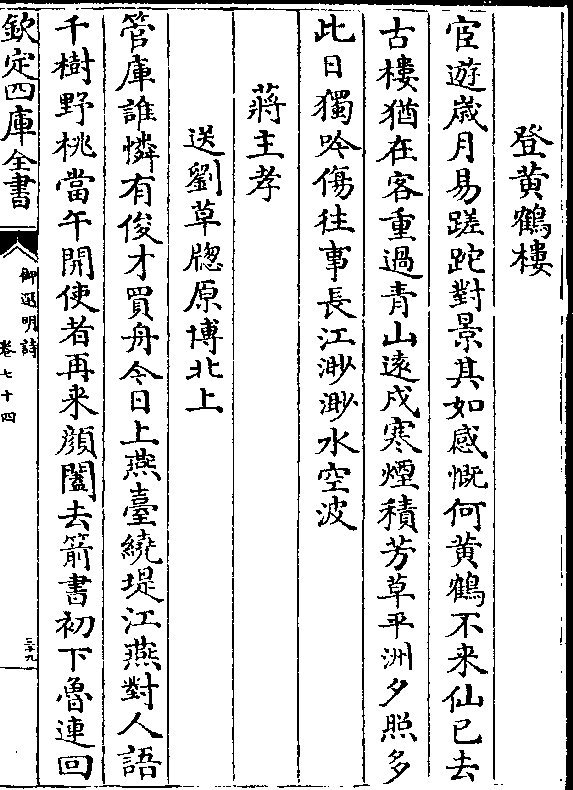 登黄鶴樓
宦遊歳月易蹉跎對景其如感慨何黄鶴不来仙已去
古樓猶在客重過青山遠戍寒煙積芳草平洲夕照多
此日獨吟傷往事長江渺渺水空波
蔣主孝
送劉草牕原博北上
管庫誰憐有俊才買舟今日上燕臺繞堤江燕對人語
千樹野桃當午開使者再来顔闔去箭書初下魯連回
欽定四庫全書
御選明詩
卷七十四
三十九